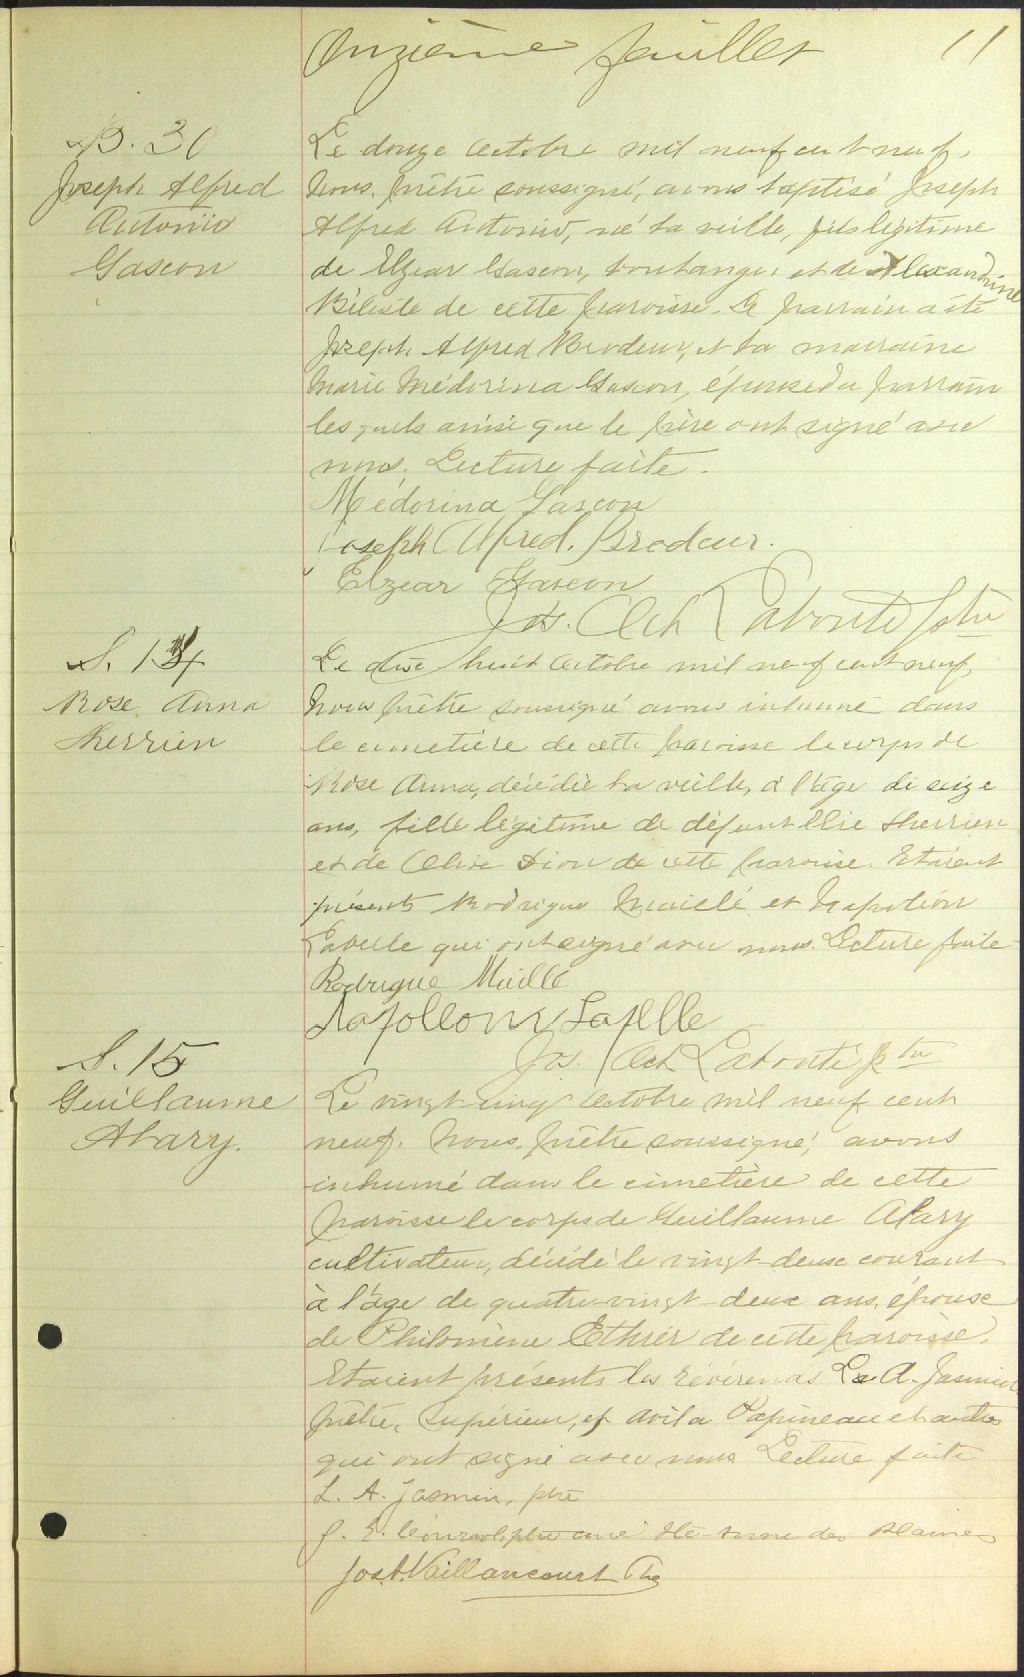 Onzième feuillet 11
B. 30
Joseph Alfred
Antonio
Gascon
Le douze octobre mil neuf cent neuf,
Nous, prêtre soussigné, avons baptisé Joseph
Alfred Antonio, né la veille, fils légitime
de Elzear Gascon, boulanger et de Alexandrine
Bélisle de cette paroisse. Le parrain a été
Joseph Alfred Brodeur, et la marraine
Marie Médorina Gascon, épouse du parrain
lesquels ainsi que le père ont signé avec
nous. Lecture faite.
Médorina Gascon
Joseph Alfred. Brodeur.
Elzear Gascon
Jos. Och Labonté ptre
S. 14
Rose Anna
Therrien
Le dix huit octobre mil neuf cent neuf,
Nous prêtre soussigné avons inhumé dans
le cimetière de cette paroisse le corps de
Rose Anna, décédée la veille, à l'âge de seize
ans, fille légitime de défunt Elie Therrien
et de Olive Dion de cette paroisse. Etaient
présents Rodrigue Maillé et Napoléon
Labelle qui ont signé avec nous. Lecture faite
Rodrigue Maillé
Napolleon Labelle
Jos. Och Labonté ptre
S. 15
Guillaume
Alary.
Le vingt-cinq octobre mil neuf cent
neuf. Nous, prêtre soussigné, avons
inhumé dans le cimetière de cette
paroisse le corps de Guillaume Alary
cultivateur, décédé le vingt-deux courant
à l'âge de quatre-vingt-deux ans, épouse
de Philomène Ethier de cette paroisse.
Etaient présents les révérends L. A. Jasmin
prêtre, Supérieur, et Avila Papineau et autres
qui ont signé avec nous Lecture faite
L. A. Jasmin, ptre
J. E. ptre curé Ste Anne des Plaines
Jos. A. Vaillancourt Ptre